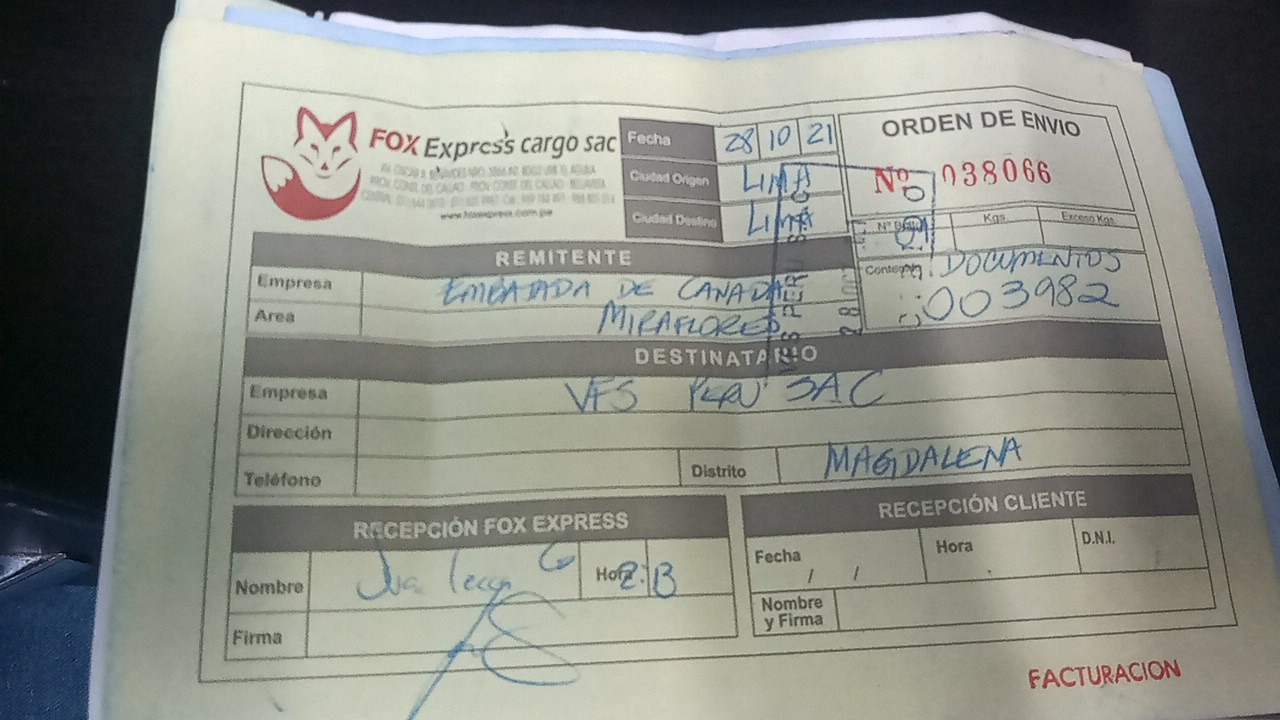 FOX Express cargo sac
www.foxexpress.com.pe
Fecha 28 10 21
Ciudad Origen LIMA
Ciudad Destino LIMA
ORDEN DE ENVIO
Nº 038066
Kgs. Exceso Kgs.
DOCUMENTOS
003982
REMITENTE
Empresa EMBAJADA DE CANADA
Area MIRAFLORES
DESTINATARIO
Empresa VFS PERU SAC
Dirección
Teléfono Distrito MAGDALENA
RECEPCIÓN FOX EXPRESS
Nombre Hora
Firma
RECEPCIÓN CLIENTE
Fecha / / Hora D.N.I.
Nombre
y Firma
FACTURACION